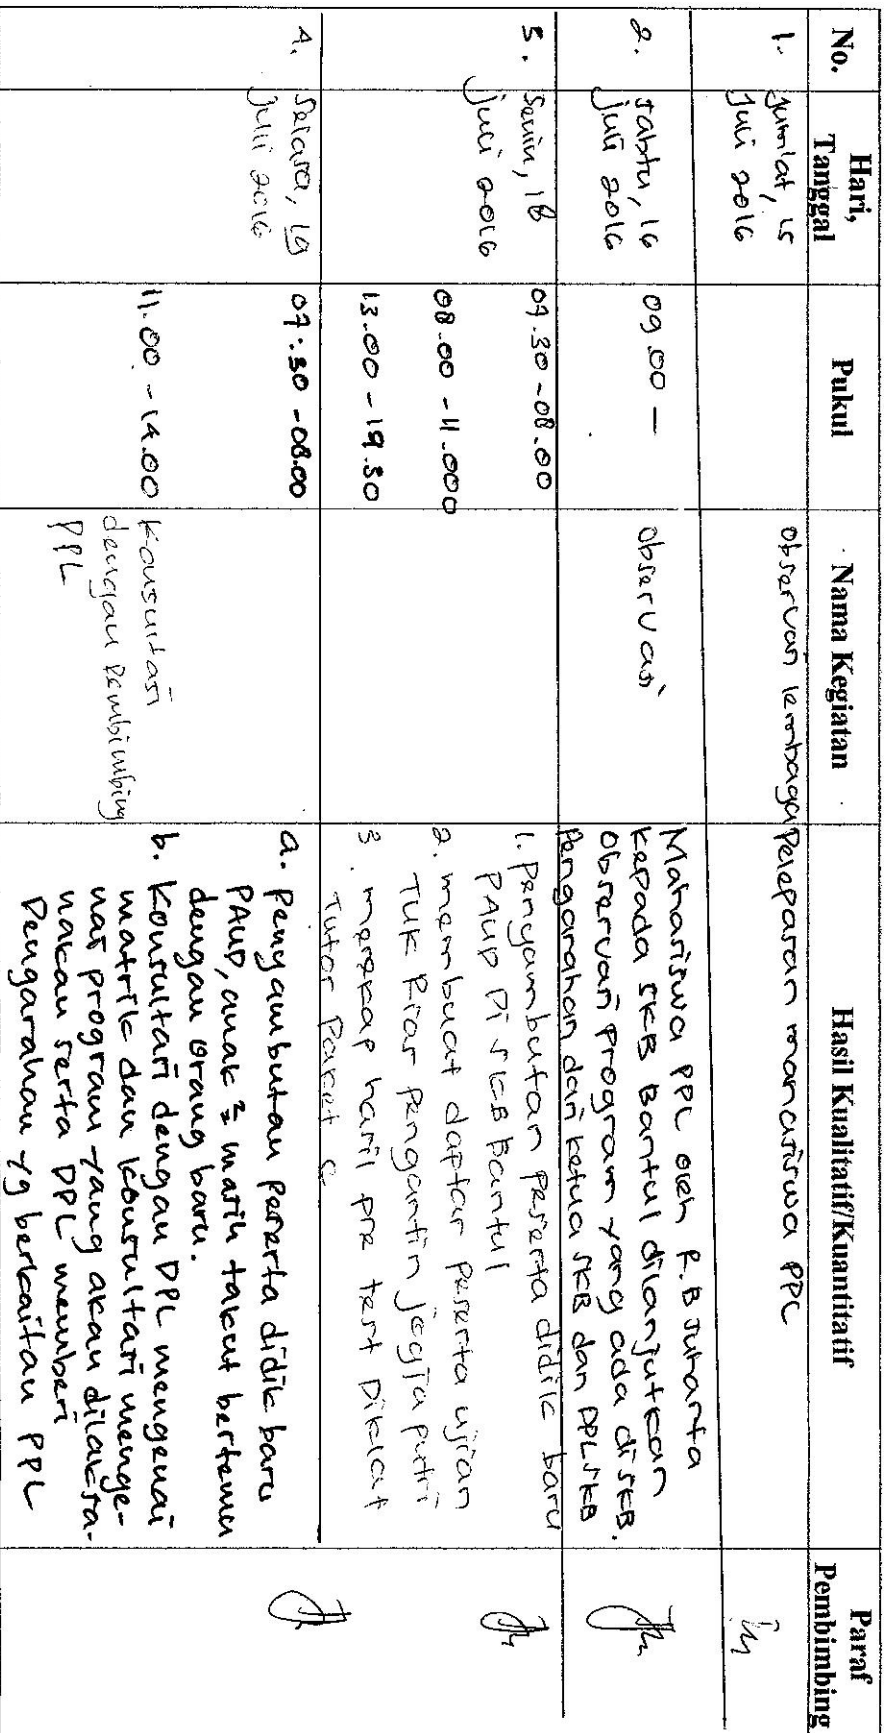 No.
Hari,
Tanggal
Pukul
Nama Kegiatan
Hasil Kualitatif/Kuantitatif
Paraf
Pembimbing
1.
Jum'at, 15
Juli 2016
Observasi lembaga
Pelepasan mahasiswa PPL
2.
Sabtu, 16
Juli 2016
09.00 -
Observasi
Mahasiswa PPL oleh R.B Suharta
kepada SKB Bantul dilanjutkan
Observasi Program yang ada di SKB.
Pengarahan dari ketua SKB dan PPL SKB
3.
Senin, 18
Juli 2016
07.30 - 08.00
08.00 - 11.000
13.00 - 19.30
1. Penyambutan peserta didik baru
PAUD Di SKB Bantul
2. membuat daftar peserta ujian
TUK Rias pengantin jogja putri
3. merekap hasil pre test Diklat
Tutor Paket C
4.
Selasa, 19
Juli 2016
07:30 - 08.00
a. Penyambutan peserta didik baru
PAUD, anak2 masih takut bertemu
dengan orang baru.
11.00 - 14.00
Konsultasi
dengan Pembimbing
PPL
b. Konsultasi dengan DPL mengenai
matrik dan konsultasi menge-
nai program yang akan dilaksa-
nakan serta DPL memberi
Pengarahan yg berkaitan PPL